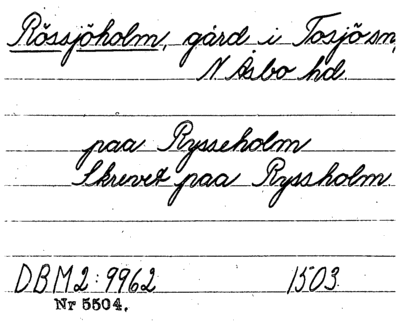 Rössjöholm, gård i Tosjö sn,
N Åsbo hd
paa Rysseholm
Skrevet paa Ryssholm
DBM2:9962 1503
Nr 5504.